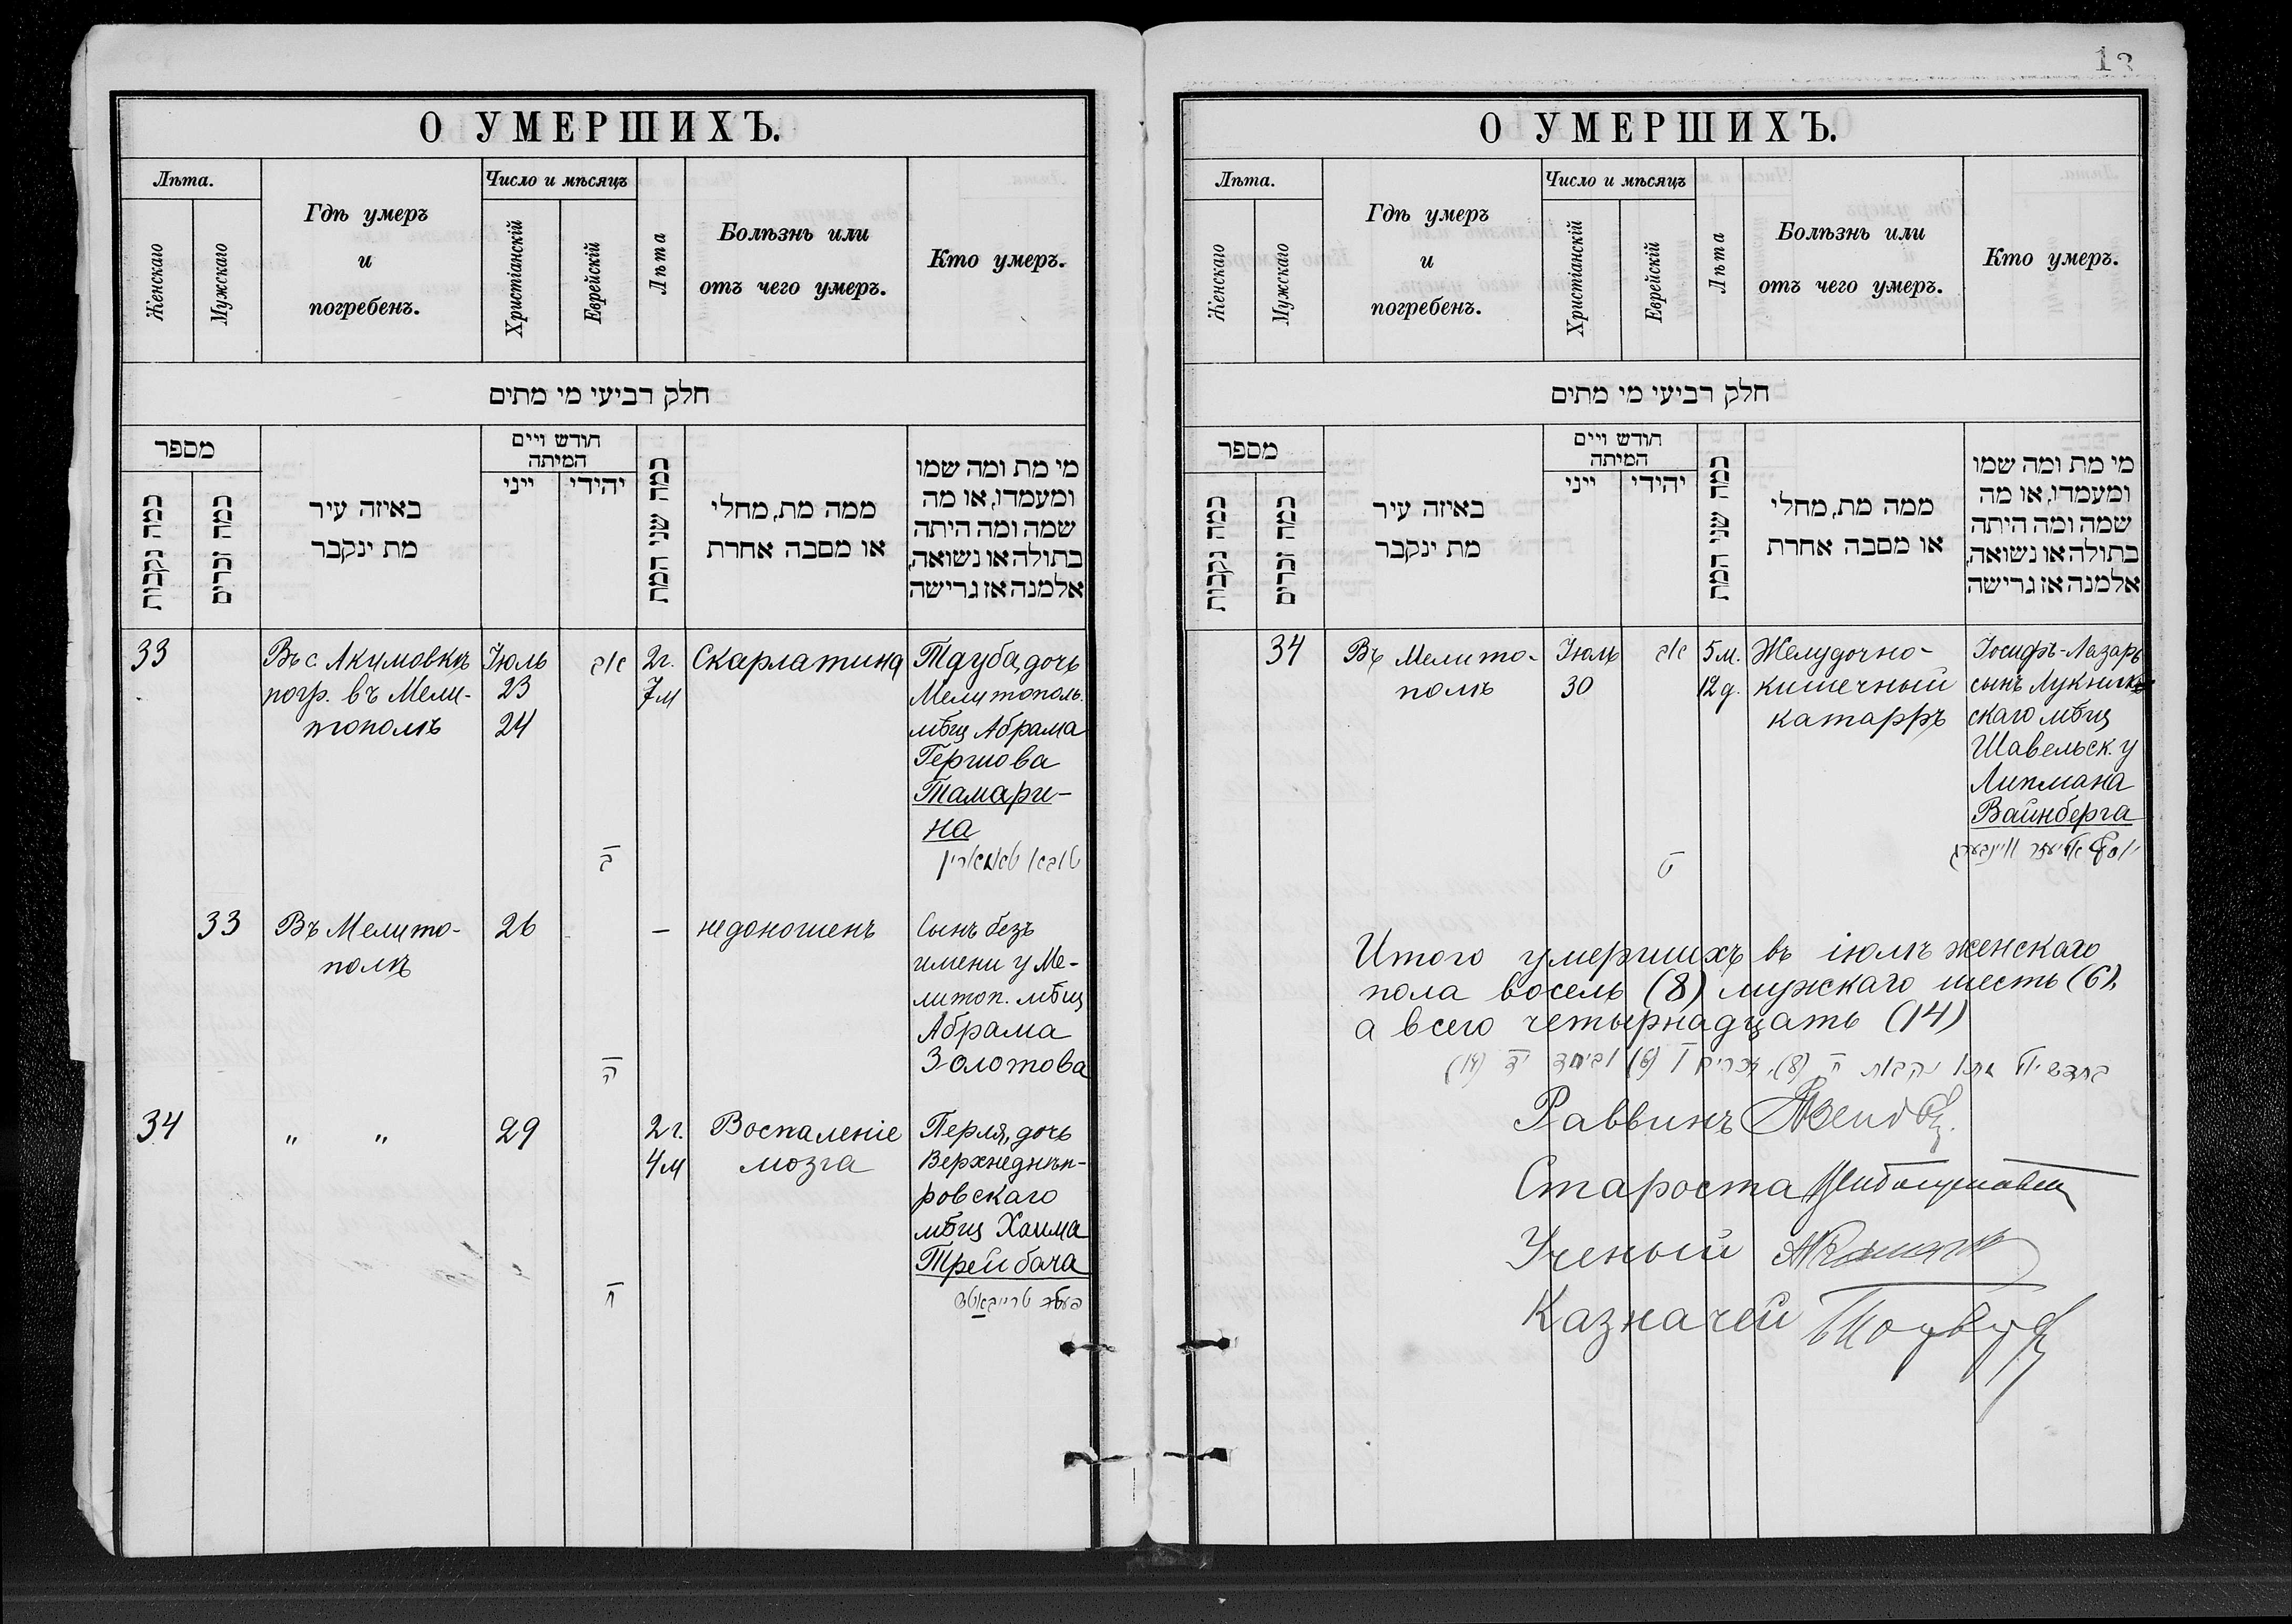 О УМЕРШИХЪ.
Лѣта.
Женскаго
Мужскаго
Гдѣ умеръ
и
погребенъ.
Число и мѣсяцъ
Христіанскій
Еврейскій
Лѣта
Болѣзнь или
отъ чего умеръ.
Кто умеръ.
חלק רביעי מי מתים
מספר
כמה נקבות
כמה זכרים
באיזה עיר
מת ינקבר
חודש ויים
המיתה
ייני
יהידי
כמה שני המת
ממה מת, מחלי
או מסבה אחרת
מי מת ומה שמו
ומעמדו, או מה
שמה ומה היתה
בתולה או נשואה,
אלמנה אז גרישה
33
Въ с. Акимовкѣ
погр. въ Мели-
тополѣ
Іюль
23
24
אב
ב
2г.
7м
Скарлатина
Тауба, дочь
Мелитополь.
мѣщ Абрама
Гершова
Тамари-
на
טובא טאמארין
33
Въ Мелито-
полѣ
26
ה
—
недоношенъ
Сынъ безъ
имени у Ме-
литоп. мѣщ
Абрама
Золотова
34
" "
29
ח
2г.
4м
Воспаленіе
мозга
Перля, дочь
Верхнеднѣп-
ровскаго
мѣщ Хаима
Трейбача
13
О УМЕРШИХЪ.
Лѣта.
Женскаго
Мужскаго
Гдѣ умеръ
и
погребенъ.
Число и мѣсяцъ
Христіанскій
Еврейскій
Лѣта
Болѣзнь или
отъ чего умеръ.
Кто умеръ.
חלק רביעי מי מתים
מספר
כמה נקבות
כמה זכרים
באיזה עיר
מת ינקבר
חודש ויים
המיתה
ייני
יהידי
כמה שני המת
ממה מת, מחלי
או מסבה אחרת
מי מת ומה שמו
ומעמדו, או מה
שמה ומה היתה
בתולה או נשואה,
אלמנה אז גרישה
34
Въ Мелито-
полѣ
Іюль
30
אב
ט
5м.
12 д.
Желудочно-
кишечный
катарръ
Іосифъ-Лазарь
сынъ Лукник
скаго мѣщ
Шавельск. у
Липмана
Вайнберга
יוסף אליעזר ויינבערג
Итого умершихъ въ іюлѣ женскаго
пола восемь (8) мужскаго шесть (6),
а всего четырнадцать (14)
בחדש יול מתו נקבות ח (8), זכרים ו (6) וביחד יד (14)
Раввинъ
Староста
Ученый
Казначей